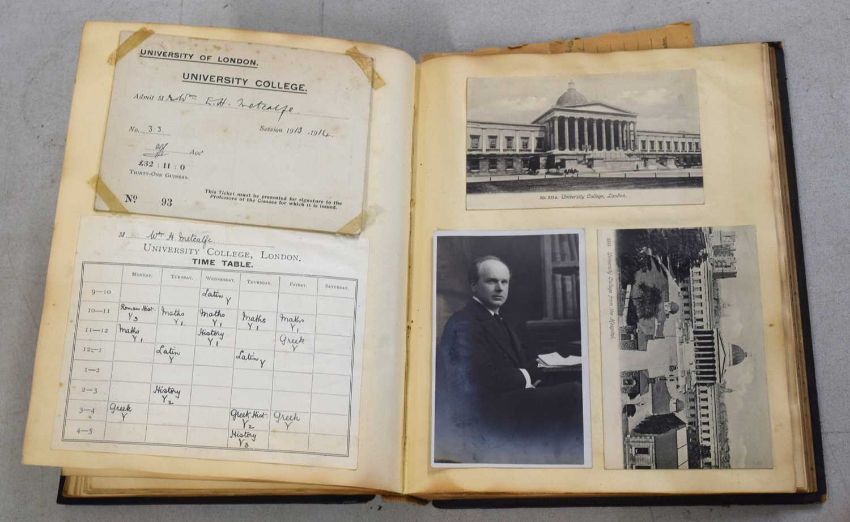 UNIVERSITY OF LONDON.
UNIVERSITY COLLEGE.
Admit M Wm E. H. Metcalfe
No. 33 Session 1913-1914
£32 : 11 : 0
THIRTY-ONE GUINEAS.
Nº 93
This Ticket must be presented for signature to the
Professors of the Classes for which it is issued.
M Wm H. Metcalfe
UNIVERSITY COLLEGE, LONDON.
TIME TABLE.
MONDAY. TUESDAY. WEDNESDAY. THURSDAY. FRIDAY. SATURDAY.
9—10 Latin Y
10—11 Roman Hist. Y3 Maths Y1 Maths Y1 Maths Y1 Maths Y1
11—12 Maths Y1 History Y1 Greek Y
12—1 Latin Y Latin Y
1—2
2—3 History Y2
3—4 Greek Y Greek Hist Y2 Greek Y
4—5 History Y3
University College, London.
University College from the Hospital